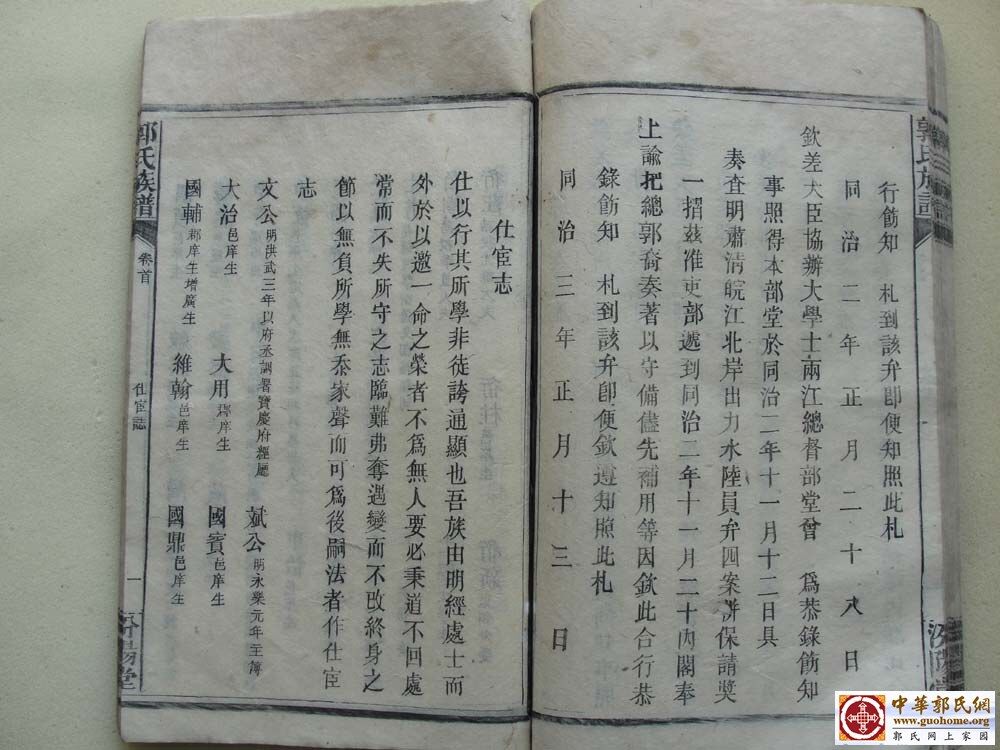 郭氏族譜
汾陽堂
行飭知　札到該弁即便知照此札
同治二年正月二十八日
欽差大臣協辦大學士兩江總督部堂曾　為恭錄飭知
事照得本部堂於同治二年十一月十二日具
奏查明肅清皖江北岸出力水陸員弁四案併保請獎
一摺茲准吏部遞到同治二年十一月二十內閣奉
上諭把總郭喬奏著以守備儘先補用等因欽此合行恭
錄飭知　札到該弁即便欽遵知照此札
同治三年正月十三日
仕宦志
仕以行其所學非徒誇通顯也吾族由明經處士而
外於以邀一命之榮者不為無人要必秉道不回處
常而不失所守之志臨難弗奪遇變而不改終身之
節以無負所學無忝家聲而可為後嗣法者作仕宦
志
文公 明洪武三年以府丞調署寶慶府經廳　斌公 明永樂元年主簿
大治 邑庠生　大用 庠生　國賓 邑庠生
國輔 郡庠生增廣生　維翰 邑庠生　國鼎 邑庠生
郭氏族譜　卷首　仕宦誌　一　汾陽堂
中華郭氏網
www.guohome.org
郭氏網上家園